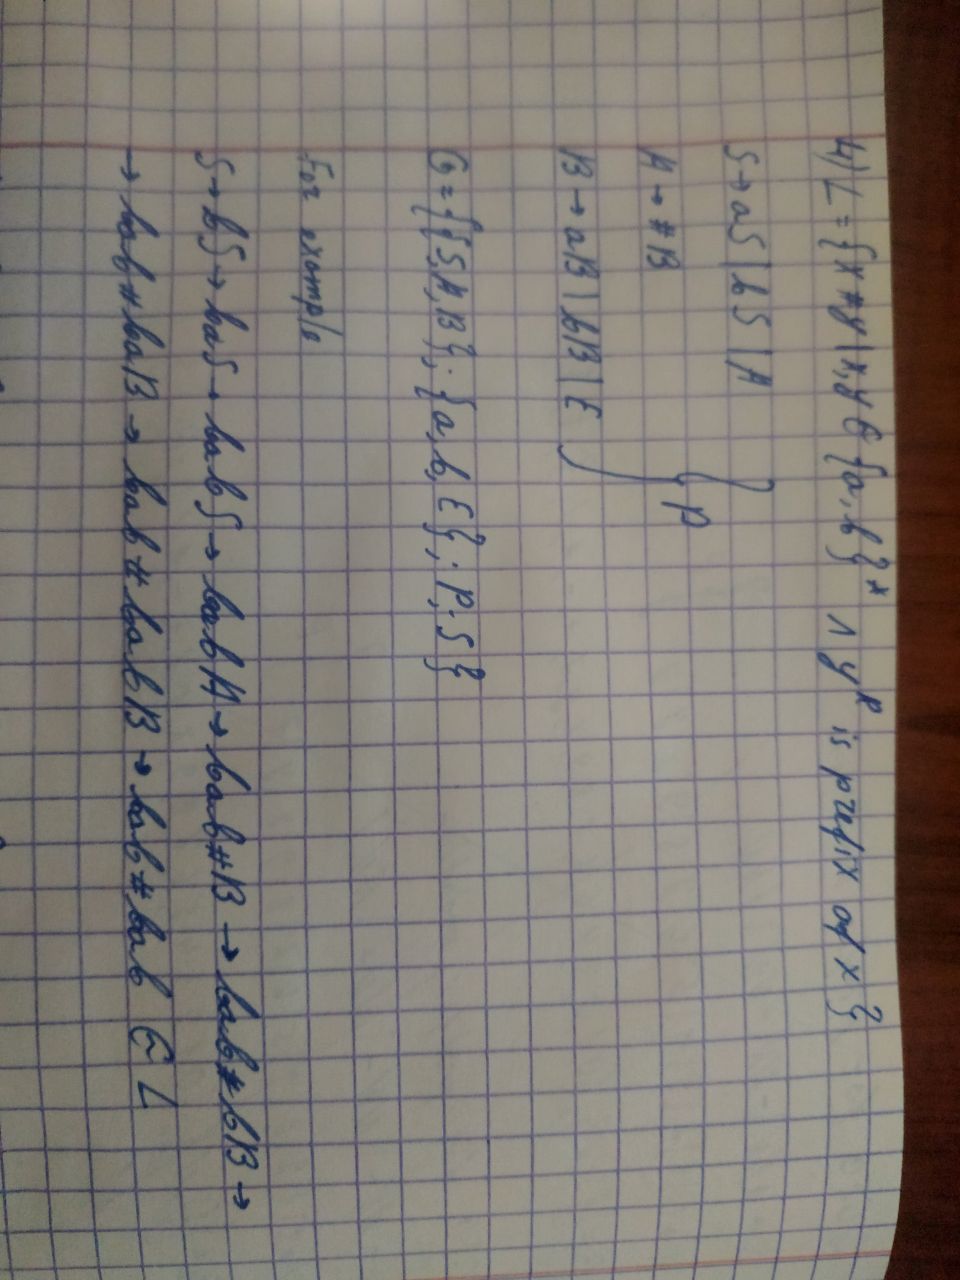 4) L = {x # y | x, y ∈ {a, b}* ∧ yᴿ is prefix of x}
S → aS | bS | A
A → # B
B → aB | bB | ε } P
G = {{S, A, B}; {a, b, ε}; P, S}
For example
S → bS → baS → babS → babA → bab#B → bab#bB →
→ bab#baB → bab#babB → bab#bab ∈ L